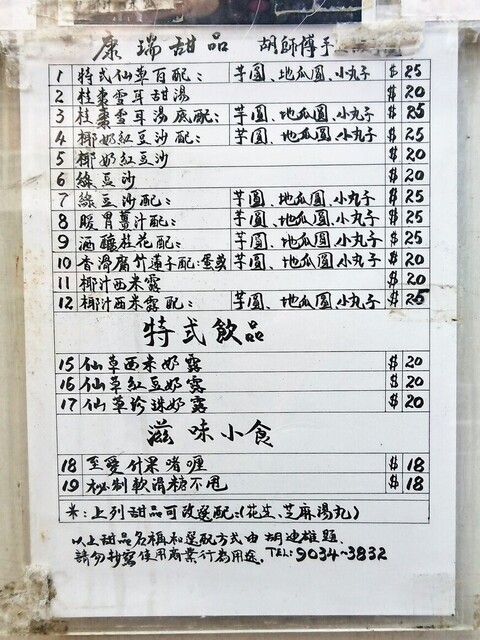 康瑞甜品 胡師傅手
1 特式仙草百配： 芋圓、地瓜圓、小丸子 $ 25
2 桂棗雪耳甜湯 $ 20
3 桂棗雪耳湯底配： 芋圓、地瓜圓、小丸子 $ 25
4 椰奶紅豆沙配： 芋圓、地瓜圓、小丸子 $ 25
5 椰奶紅豆沙 $ 20
6 綠豆沙 $ 20
7 綠豆沙配： 芋圓、地瓜圓、小丸子 $ 25
8 暖胃薑汁配： 芋圓、地瓜圓、小丸子 $ 25
9 酒釀桂花配： 芋圓、地瓜圓、小丸子 $ 25
10 香滑腐竹蓮子配：蛋或 芋圓、地瓜圓、小丸子 $ 20
11 椰汁西米露 $ 20
12 椰汁西米露配： 芋圓、地瓜圓、小丸子 $ 25
特式飲品
15 仙草西米奶露 $ 20
16 仙草紅豆奶露 $ 20
17 仙草珍珠奶露 $ 20
滋味小食
18 至愛什果啫喱 $ 18
19 秘制軟滑糖不甩 $ 18
*：上列甜品可改選配：(花生、芝麻湯丸)
以上甜品名稱和選配方式由胡迪雄題
請勿抄寫使用商業行為用途。TEL：9034-3832